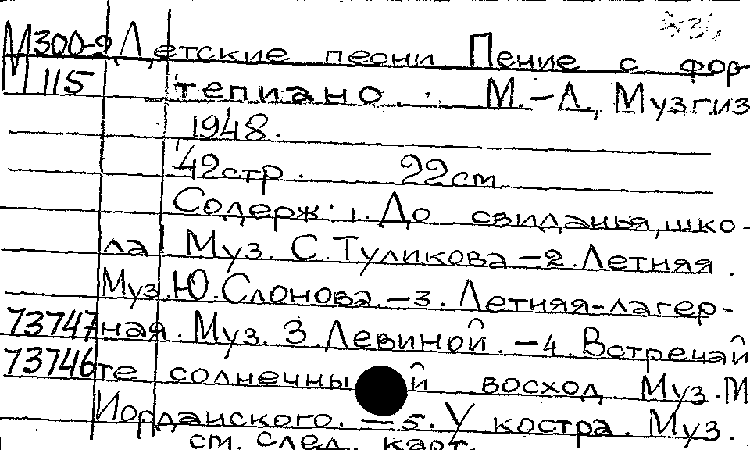 М300-2 Детские песни Пение с фор-
М115 тепиано. М.-Л., Музгиз
1948.
42стр. 22см
Содерж: 1. До свиданья, шко-
ла! Муз. С. Туликова -2. Летняя.
Муз. Ю. Слонова. -3. Летняя-лагер-
73747 ная. Муз. З. Левиной. -4. Встречай
73746 те солнечный восход Муз. М
Иорданского. -5. У костра. Муз.
см. след. карт.